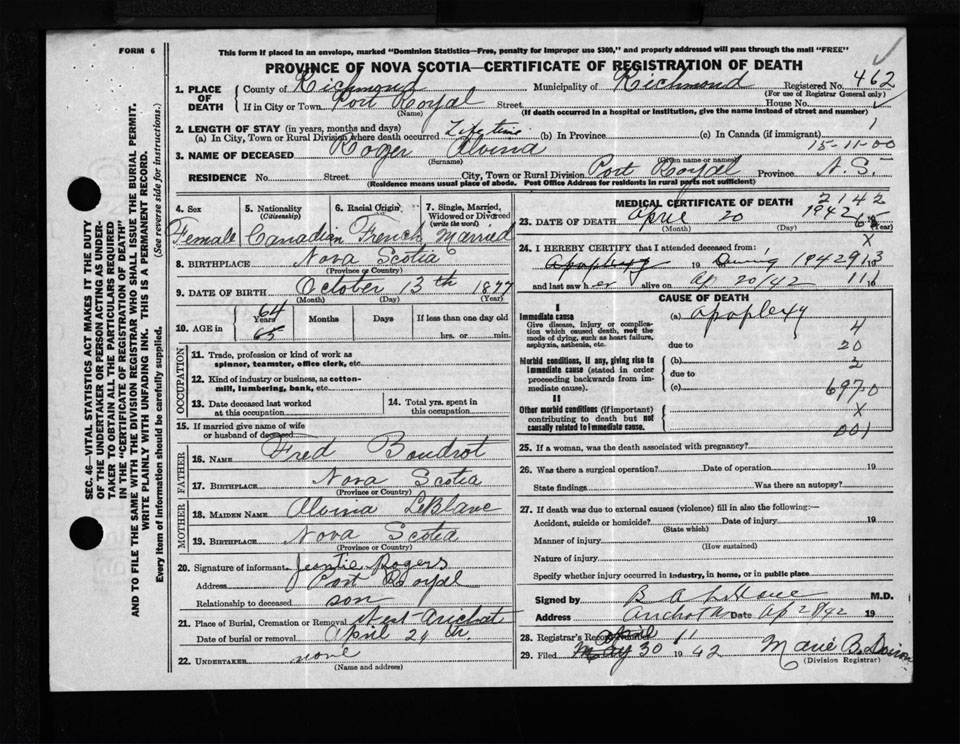 FORM 6
This form if placed in an envelope, marked "Dominion Statistics—Free, penalty for improper use $300," and properly addressed will pass through the mail "FREE"
PROVINCE OF NOVA SCOTIA—CERTIFICATE OF REGISTRATION OF DEATH
SEC. 46—VITAL STATISTICS ACT MAKES IT THE DUTY
OF THE UNDERTAKER OR PERSON ACTING AS UNDER-
TAKER TO OBTAIN ALL THE PARTICULARS REQUIRED
IN THE "CERTIFICATE OF REGISTRATION OF DEATH"
AND TO FILE THE SAME WITH THE DIVISION REGISTRAR WHO SHALL ISSUE THE BURIAL PERMIT.
WRITE PLAINLY WITH UNFADING INK. THIS IS A PERMANENT RECORD.
Every item of information should be carefully supplied. (See reverse side for instructions.)
1. PLACE OF DEATH
County of Richmond Municipality of Richmond Registered No. 462
(For use of Registrar General only)
If in City or Town Port Royal Street House No.
(Name) (If death occurred in a hospital or institution, give the name instead of street and number)
2. LENGTH OF STAY (in years, months and days)
(a) In City, Town or Rural Division where death occurred Lifetime (b) In Province (c) In Canada (if immigrant) 1
15-11-00
3. NAME OF DECEASED Roger Alvina
(Surname) (Given name or names)
RESIDENCE No. Street City, Town or Rural Division Port Royal Province N.S.
(Residence means usual place of abode. Post Office Address for residents in rural parts not sufficient)
4. Sex Female
5. Nationality (Citizenship) Canadian
6. Racial Origin French
7. Single, Married, Widowed or Divorced (write the word) Married
8. BIRTHPLACE Nova Scotia
(Province or Country)
9. DATE OF BIRTH October 13th 1877
(Month) (Day) (Year)
10. AGE in 64 Years 65 Months Days If less than one day old
hrs. or min.
OCCUPATION
11. Trade, profession or kind of work as spinner, teamster, office clerk, etc.
12. Kind of industry or business, as cotton-mill, lumbering, bank, etc.
13. Date deceased last worked at this occupation
14. Total yrs. spent in this occupation
15. If married give name of wife or husband of deceased
FATHER
16. NAME Fred Boudrot
17. BIRTHPLACE Nova Scotia
(Province or Country)
MOTHER
18. MAIDEN NAME Alvina LeBlanc
19. BIRTHPLACE Nova Scotia
(Province or Country)
20. Signature of informant Rogers
Address Port Royal
Relationship to deceased son
21. Place of Burial, Cremation or Removal West Arichat
Date of burial or removal April 24th
22. UNDERTAKER none
(Name and address)
MEDICAL CERTIFICATE OF DEATH 2142
23. DATE OF DEATH April 20 1942 6
(Month) (Day) (Year)
24. I HEREBY CERTIFY that I attended deceased from: X
Apoplexy 19 During 1942 913
and last saw her alive on Ap 20/42 111
CAUSE OF DEATH
I
Immediate cause
Give disease, injury or complication which caused death, not the mode of dying, such as heart failure, asphyxia, asthenia, etc.
(a) apoplexy
4
due to 20
Morbid conditions, if any, giving rise to immediate cause (stated in order proceeding backwards from immediate cause).
(b)
2
due to
(c) 697-0
II
Other morbid conditions (if important) contributing to death but not causally related to immediate cause.
X
001
25. If a woman, was the death associated with pregnancy?
26. Was there a surgical operation? Date of operation 19
State findings Was there an autopsy?
27. If death was due to external causes (violence) fill in also the following:—
Accident, suicide or homicide? Date of injury 19
(State which)
Manner of injury
(How sustained)
Nature of injury
Specify whether injury occurred in industry, in home, or in public place
Signed by M.D.
Address Date Ap 28/42 19
28. Registrar's Record Number 11
29. Filed May 30 1942 Marie B. Doiron
(Division Registrar)